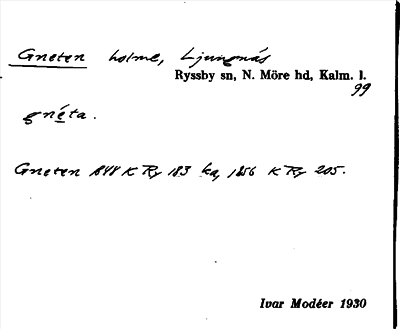 Gneten holme, Ljungnäs
Ryssby sn, N. Möre hd, Kalm. l.
99
gnéta.
Gneten 1844 K Ry 183 ka, 1856 K Ry 205.
Ivar Modéer 1930